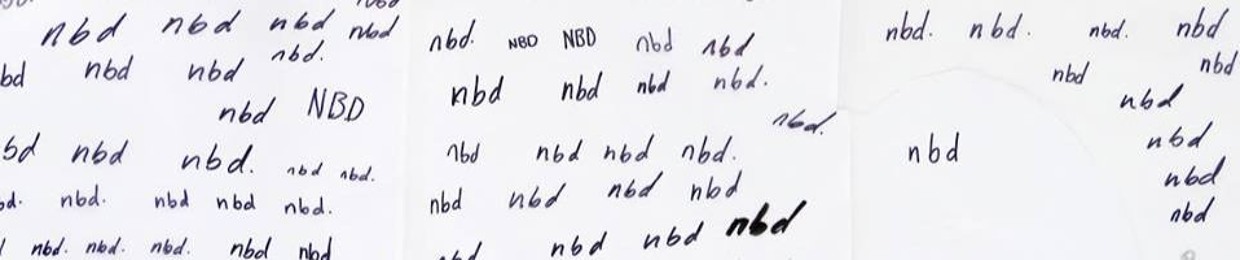 nbd nbd nbd nbd nbd.
nbd nbd
nbd NBD
nbd nbd. nbd nbd.
nbd. nbd nbd nbd.
nbd. nbd. nbd. nbd nbd
nbd. NBD NBD nbd nbd
nbd nbd nbd nbd.
nbd.
nbd nbd nbd nbd.
nbd nbd nbd nbd
nbd nbd nbd
nbd. nbd. nbd. nbd
nbd nbd
nbd
nbd nbd
nbd
nbd